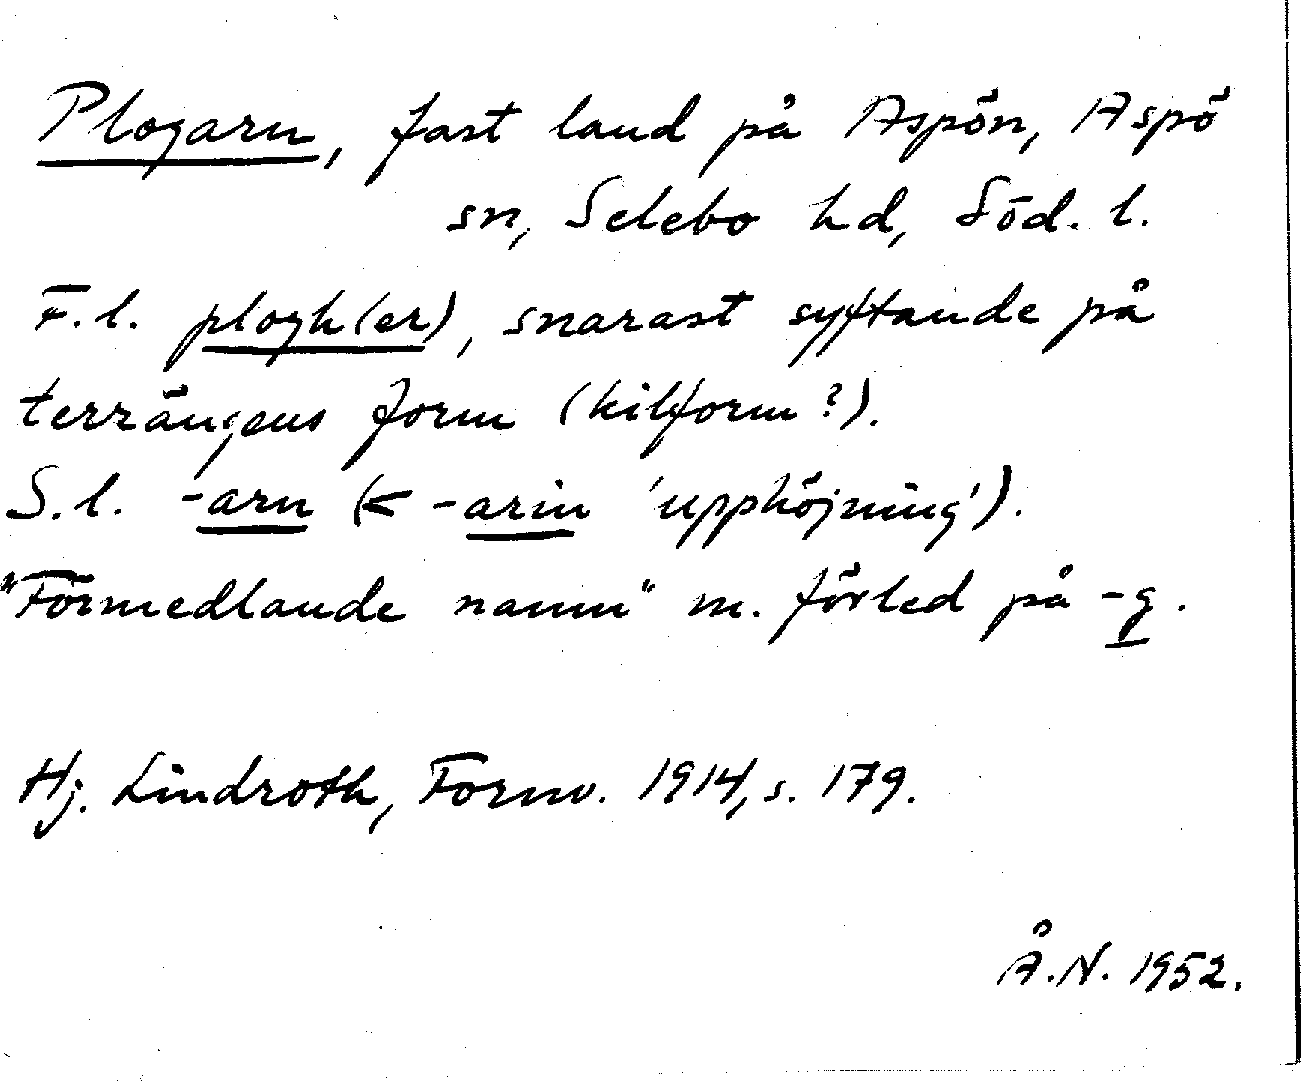 Plogarn, fast land på Aspön, Aspö
sn, Selebo hd, Söd. l.
F.l. plogh(er), snarast syftande på
terrängens form (kilform?).
S.l. -arn (< -arin 'upphöjning').
"Förmedlande namn" m. förled på -g.
Hj. Lindroth, Fornv. 1914, s. 179.
Å.N. 1952.